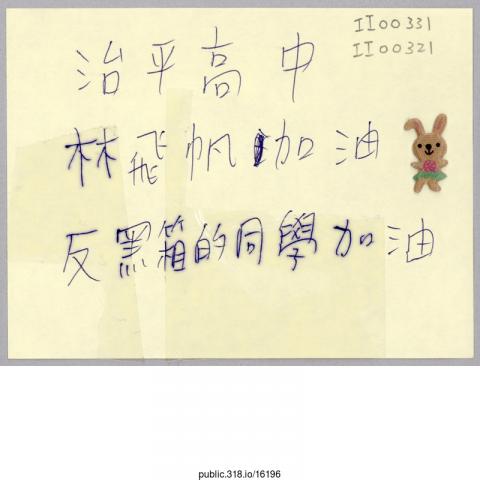 II00331
II00321
治平高中
林飛帆加油
反黑箱的同學加油
public.318.io/16196